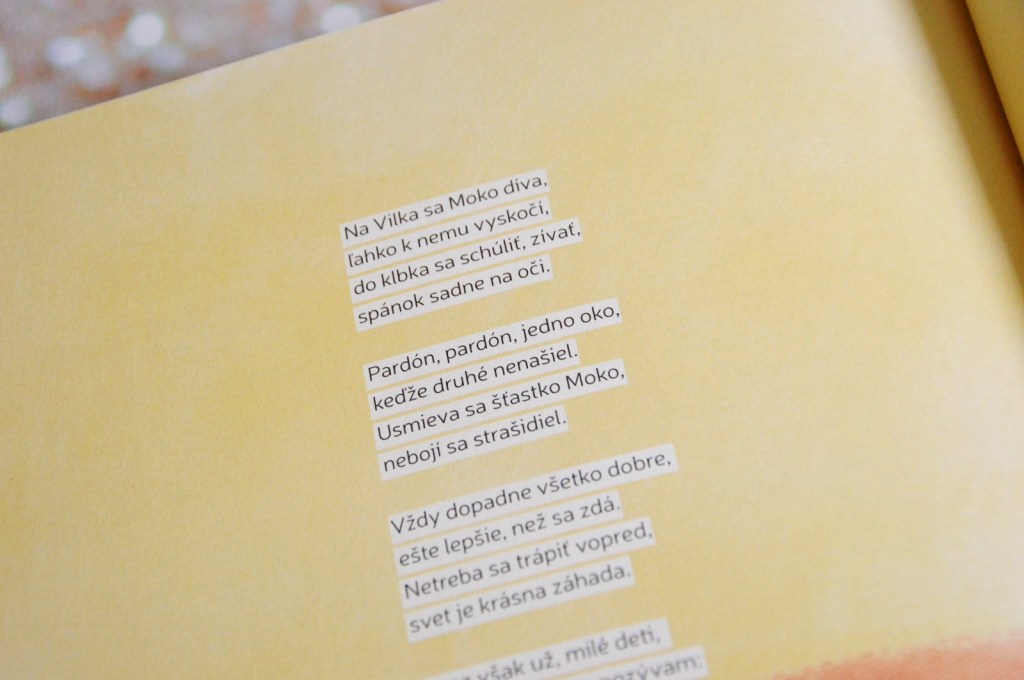 Na Vilka sa Moko díva,
ľahko k nemu vyskočí,
do klbka sa schúliť, zívať,
spánok sadne na oči.
Pardón, pardón, jedno oko,
keďže druhé nenašiel.
Usmieva sa šťastko Moko,
nebojí sa strašidiel.
Vždy dopadne všetko dobre,
ešte lepšie, než sa zdá.
Netreba sa trápiť vopred,
svet je krásna záhada.
však už, milé deti,
pozývam: